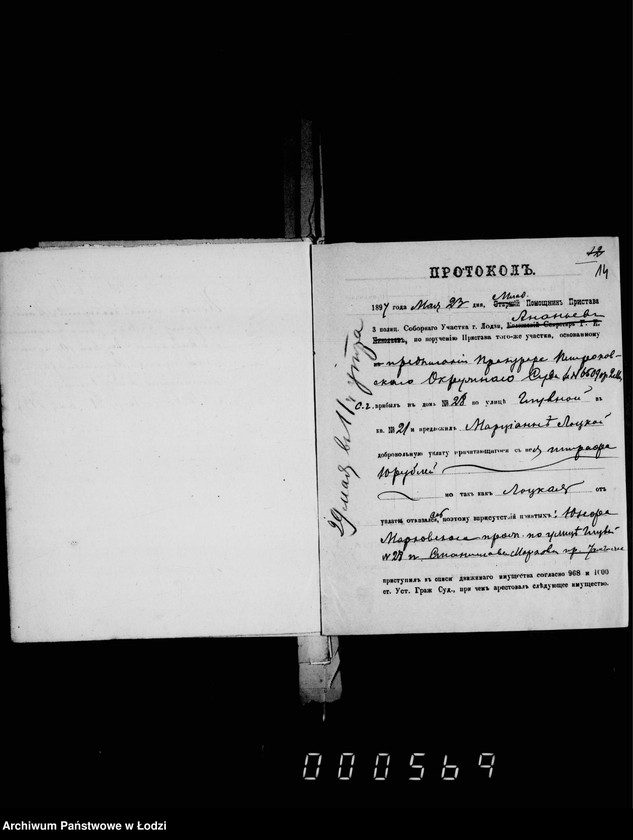 12
14
ПРОТОКОЛЪ.
1897 года Мая 23 дня, Млад. Старшій Помощникъ Пристава
Ананьевъ
3 полиц. Соборнаго Участка г. Лодзи,
по порученію Пристава того-же участка, основанному
на предписаніи Прокурора Петроков-
скаго Окружнаго Суда
с.г. прибылъ въ домъ № 28 по улицѣ Глувной въ
кв. № 21 и предложилъ Маріаннѣ Лоцкой
добровольную уплату причитающагося съ нея штрафа
10 рублей
но такъ какъ Лоцкая отъ
уплаты отказалась, поэтому въ присутствіи понятыхъ:
Марковскаго прож. по улицѣ
№ 28 и Станислава
приступилъ къ описи движимаго имущества согласно 968 и 1000
ст. Уст. Граж Суд., при чемъ арестовалъ слѣдующее имущество.
29 мая въ 11 ч утра
000569
Archiwum Państwowe w Łodzi